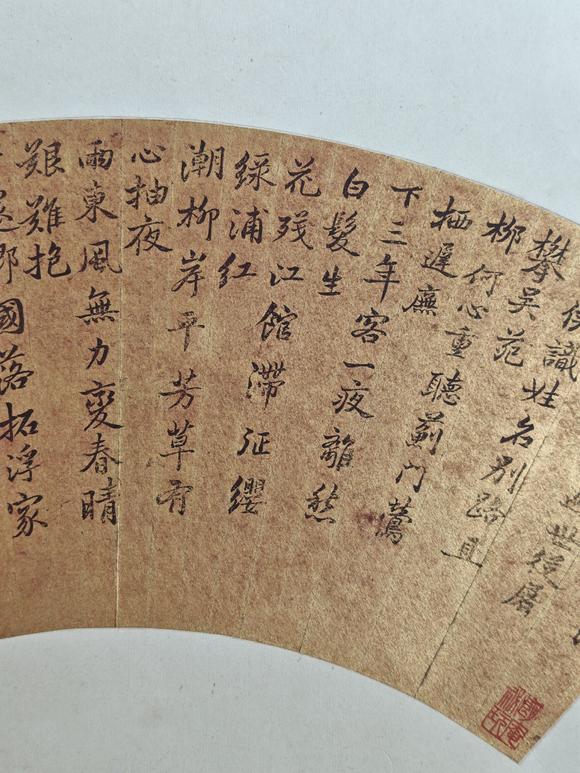 世從居
侯識姓名別路直
攀吳苑
柳何心重聽薊門鶯
栖遲廡
下三年客一夜離愁
白髮生
花殘江館滯征纓
綠浦紅
潮柳岸平芳草有
心抽夜
雨東風無力變春晴
艱難抱
國落拓浮家